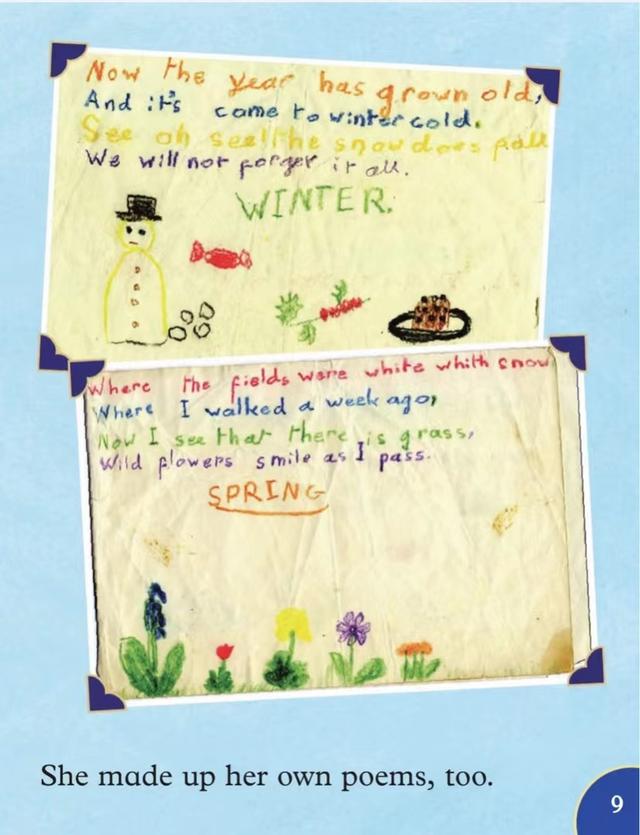 Now the year has grown old,
And it's come to winter cold.
See oh see! the snow does fall
We will not forget it all.
WINTER.
Where the fields were white whith snow
Where I walked a week ago,
Now I see that there is grass,
Wild flowers smile as I pass.
SPRING
She made up her own poems, too.
9